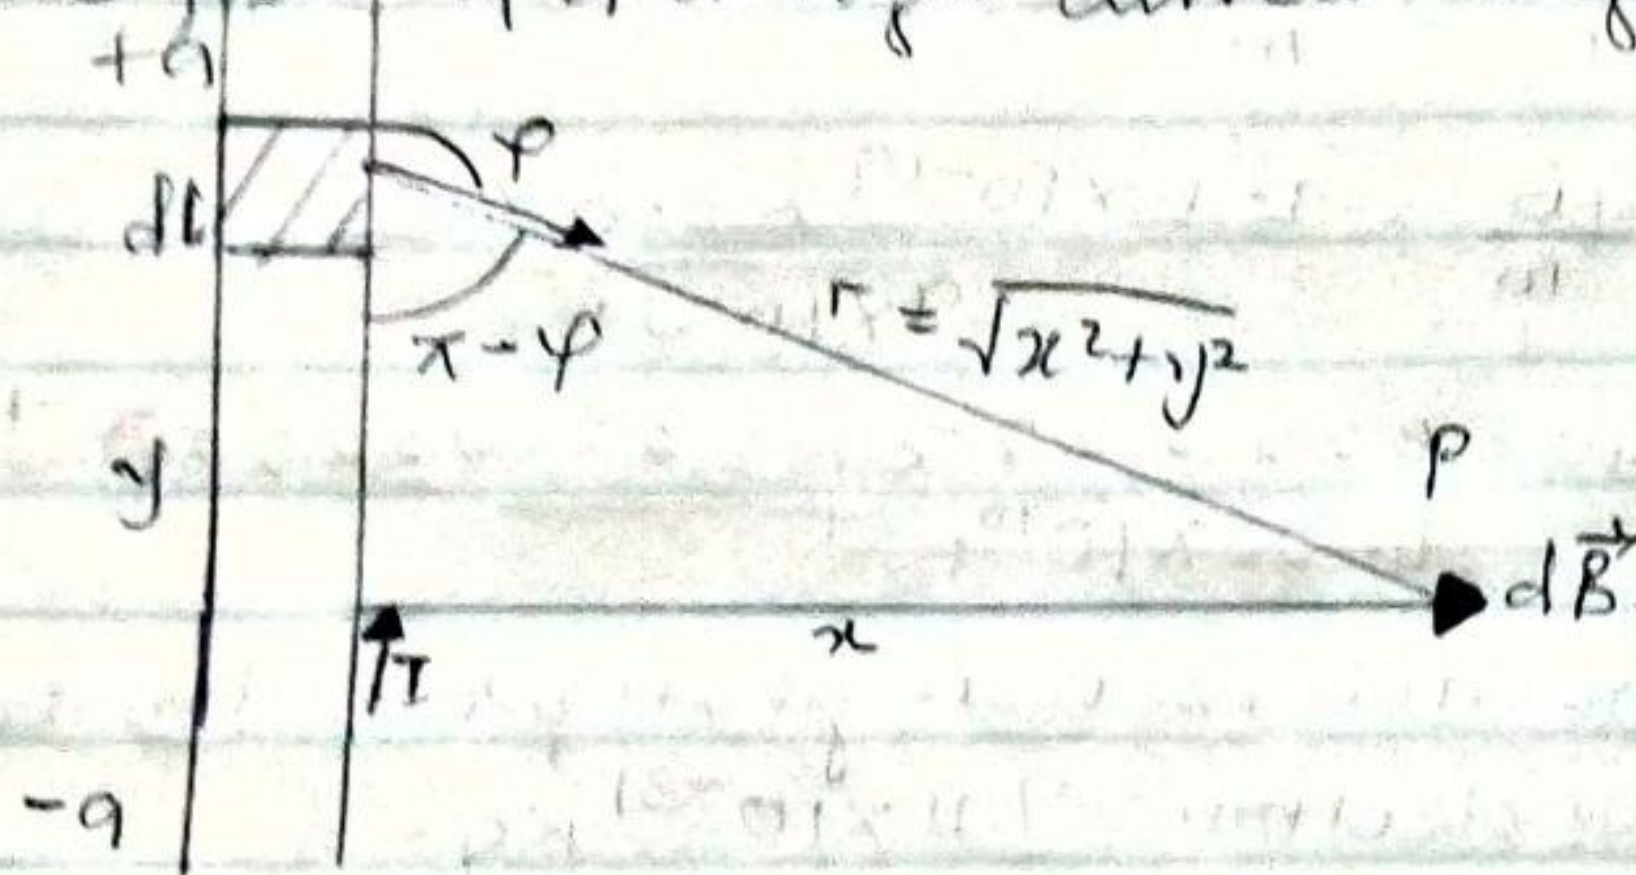 +a
φ
dl
π - φ
r = √x²+y²
y
P
dB⃗
x
I
-a